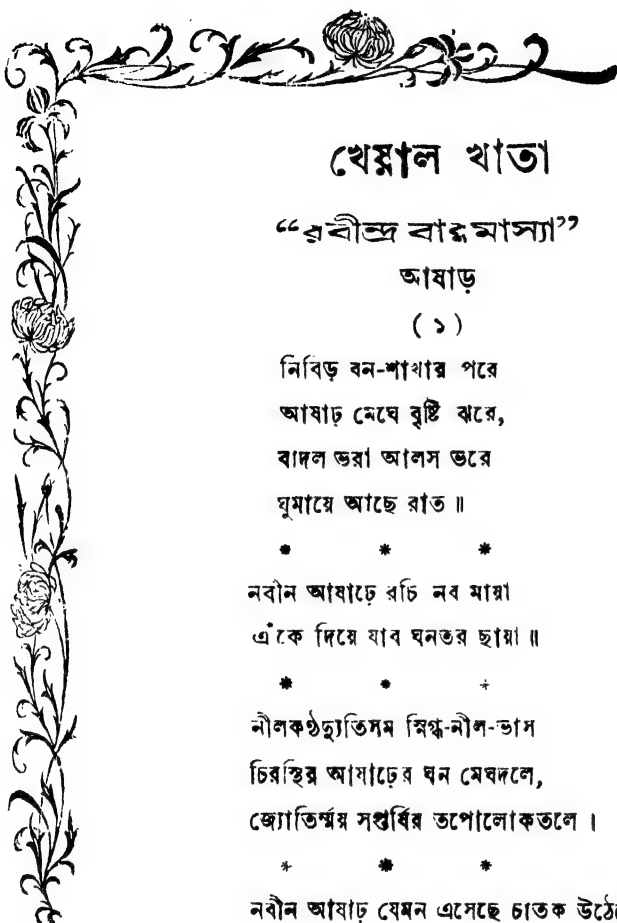 খেয়াল খাতা
“রবীন্দ্র বারমাস্যা”
আষাড়
( ১ )
নিবিড় বন-শাখার পরে
আষাঢ় মেঘে বৃষ্টি ঝরে,
বাদল ভরা আলস ভরে
ঘুমায়ে আছে রাত॥
* * *
নবীন আষাঢ়ে রচি নব মায়া
এঁকে দিয়ে যাব ঘনতর ছায়া॥
* * *
নীলকণ্ঠদ্যুতিসম স্নিগ্ধ-নীল-ভাস
চিরস্থির আষাঢ়ের ঘন মেঘদলে,
জ্যোতির্ম্ময় সপ্তর্ষির তপোলোকতলে।
* * *
নবীন আষাঢ় যেমন এসেছে চাতক